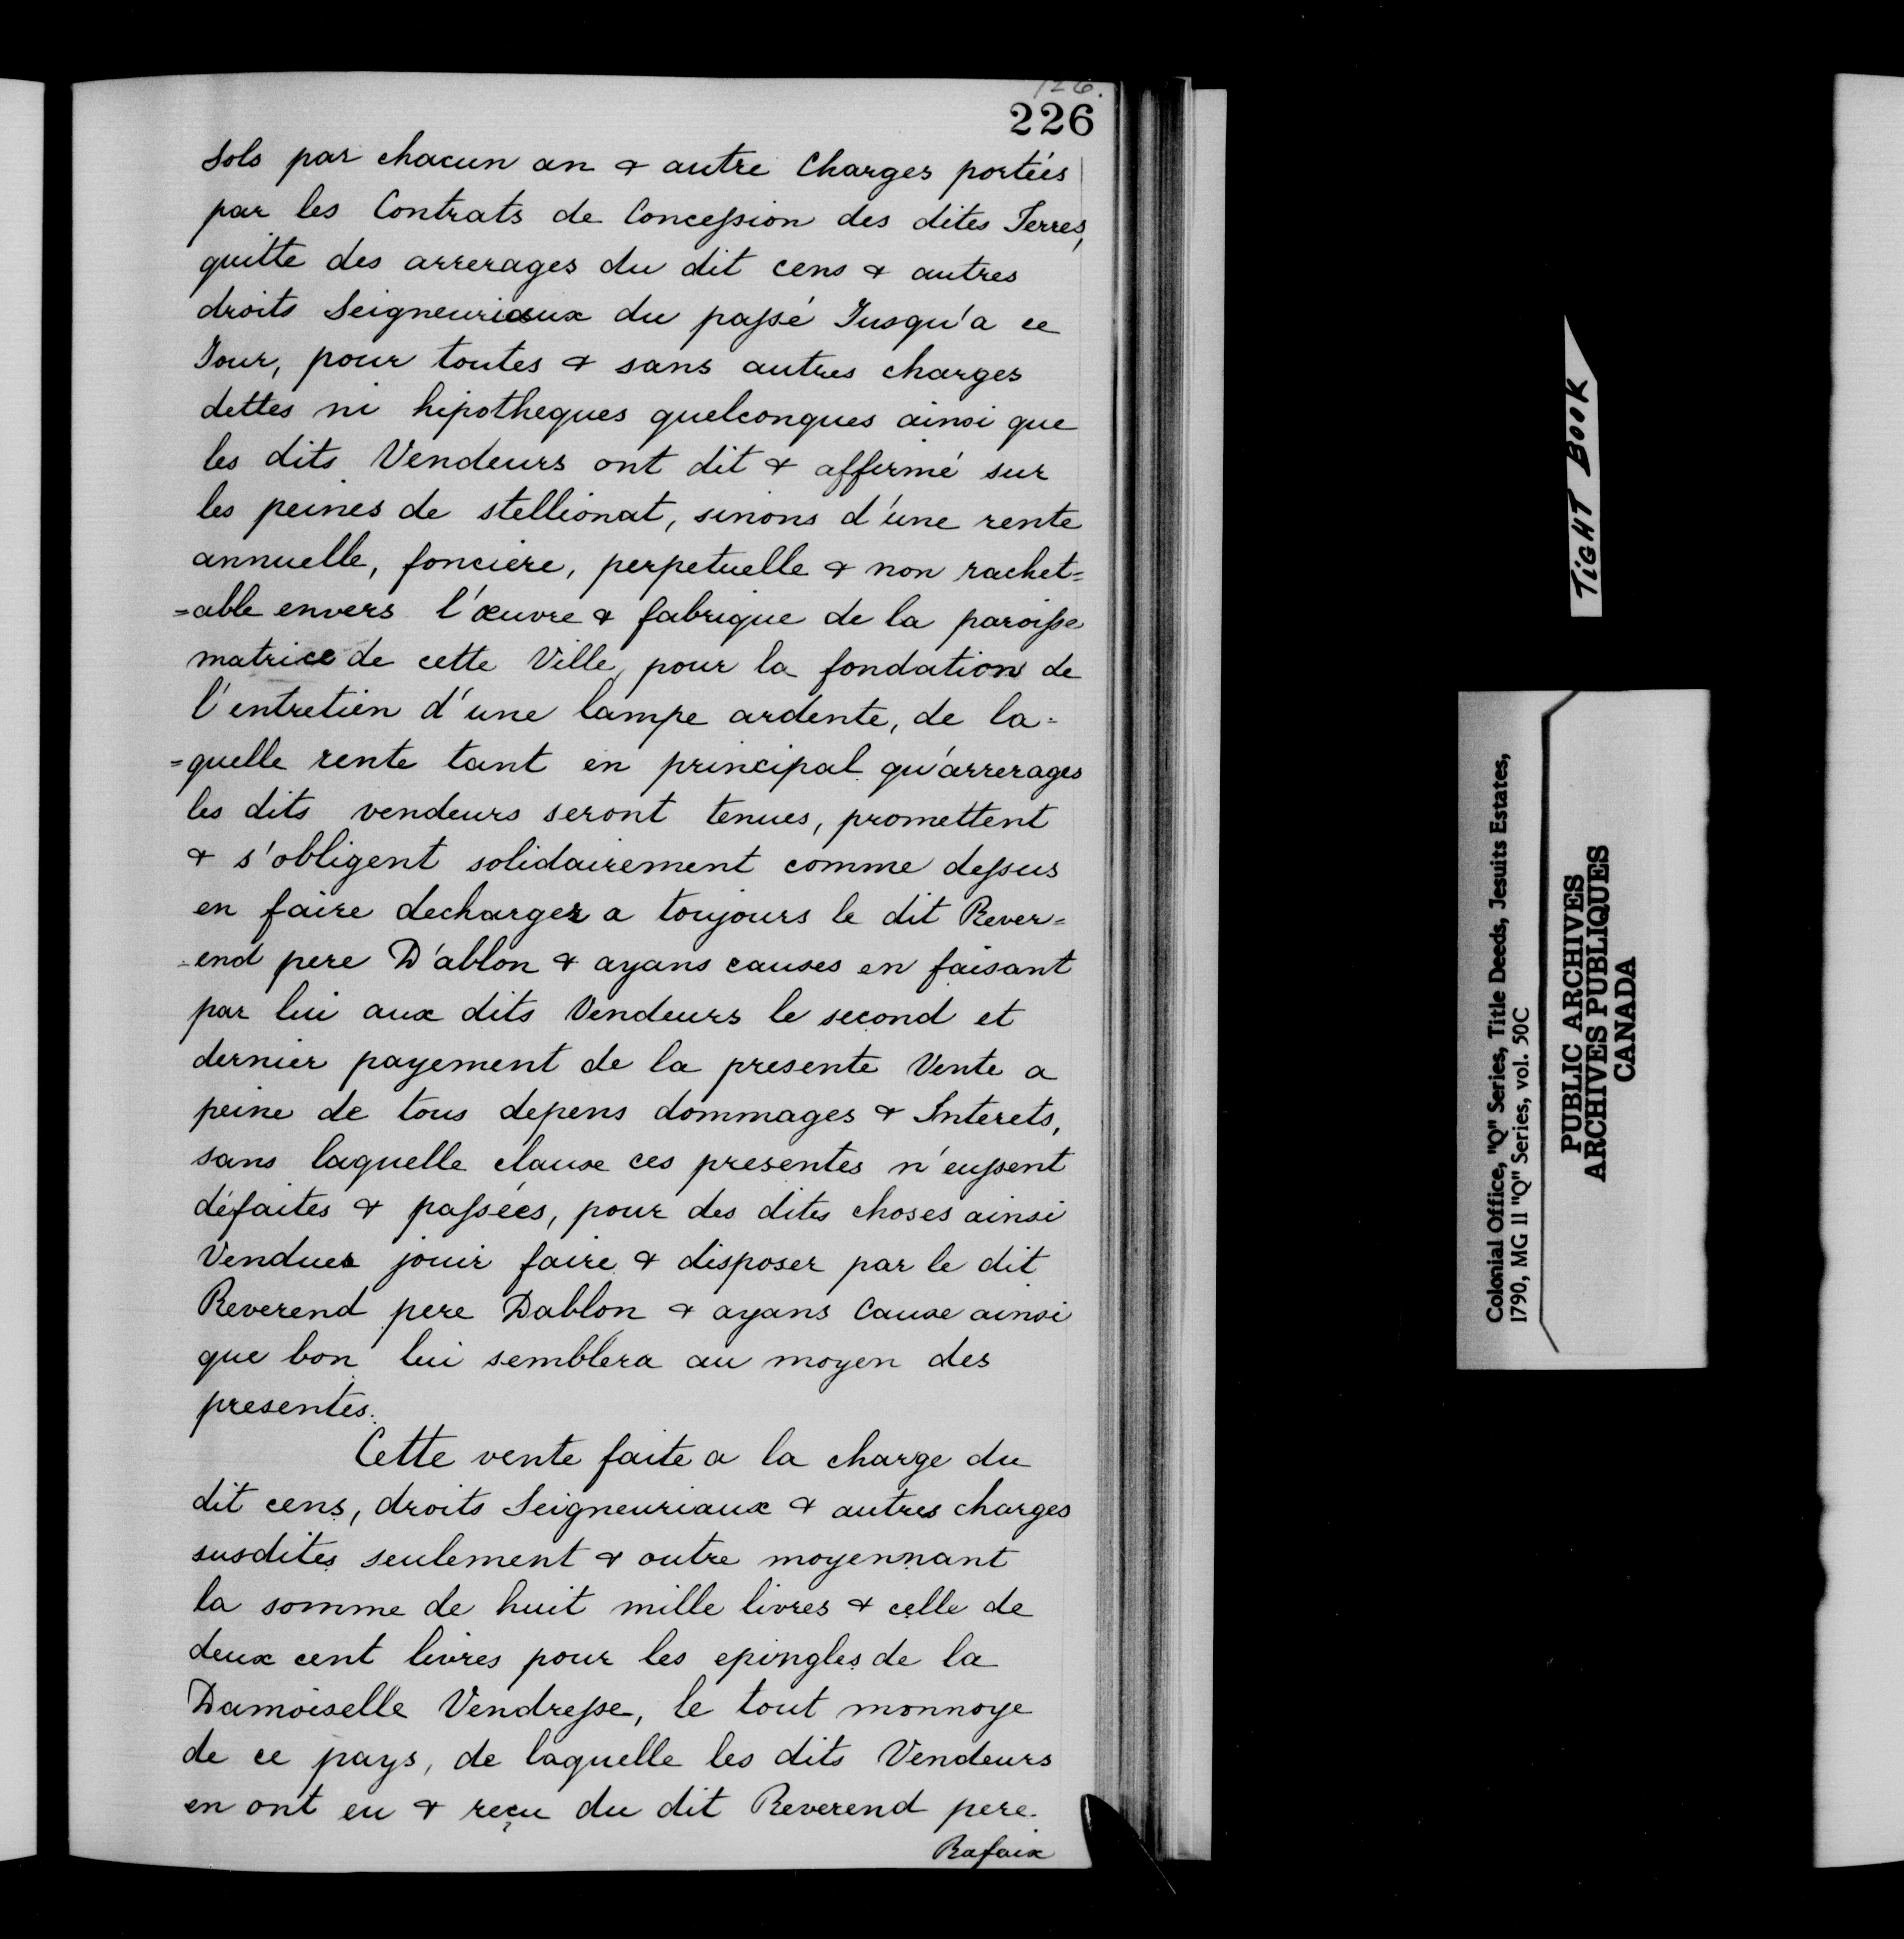 126.
226
sols par chacun an & autre Charges portées
par les Contrats de Concession des dites Terres,
quitte des arrerages du dit cens & autres
droits Seigneuriaux du passé Jusqu'a ce
Jour, pour toutes & sans autres charges
dettes ni hipotheques quelconques ainsi que
les dits Vendeurs ont dit & affermé sur
les peines de stellionat, sinons d'une rente
annuelle, fonciere, perpetuelle & non rachet=
=able envers l'œuvre & fabrique de la paroisse
matrice de cette Ville, pour la fondation de
l'entretien d'une lampe ardente, de la=
=quelle rente tant en principal qu'arrerages
les dits vendeurs seront tenues, promettent
& s'obligent solidairement comme dessus
en faire decharger a toujours le dit Rever=
=end pere D'ablon & ayans causes en faisant
par lui aux dits Vendeurs le second et
dernier payement de la presente Vente a
peine de tous depens dommages & Interets,
sans laquelle clause ces presentes n'eussent
défaites & passées, pour des dites choses ainsi
Vendues jouir faire & disposer par le dit
Reverend pere Dablon & ayans Cause ainsi
que bon lui semblera au moyen des
presentes.
Cette vente faite a la charge du
dit cens, droits Seigneuriaux & autres charges
susdites seulement & outre moyennant
la somme de huit mille livres & celle de
deux cent livres pour les epingles de la
Damoiselle Vendresse, le tout monnoye
de ce pays, de laquelle les dits Vendeurs
en ont eu & reçu du dit Reverend pere
Rafaix
TIGHT BOOK
Colonial Office, "Q" Series, Title Deeds, Jesuits Estates,
1790, MG 11 "Q" Series, vol. 50C
PUBLIC ARCHIVES
ARCHIVES PUBLIQUES
CANADA